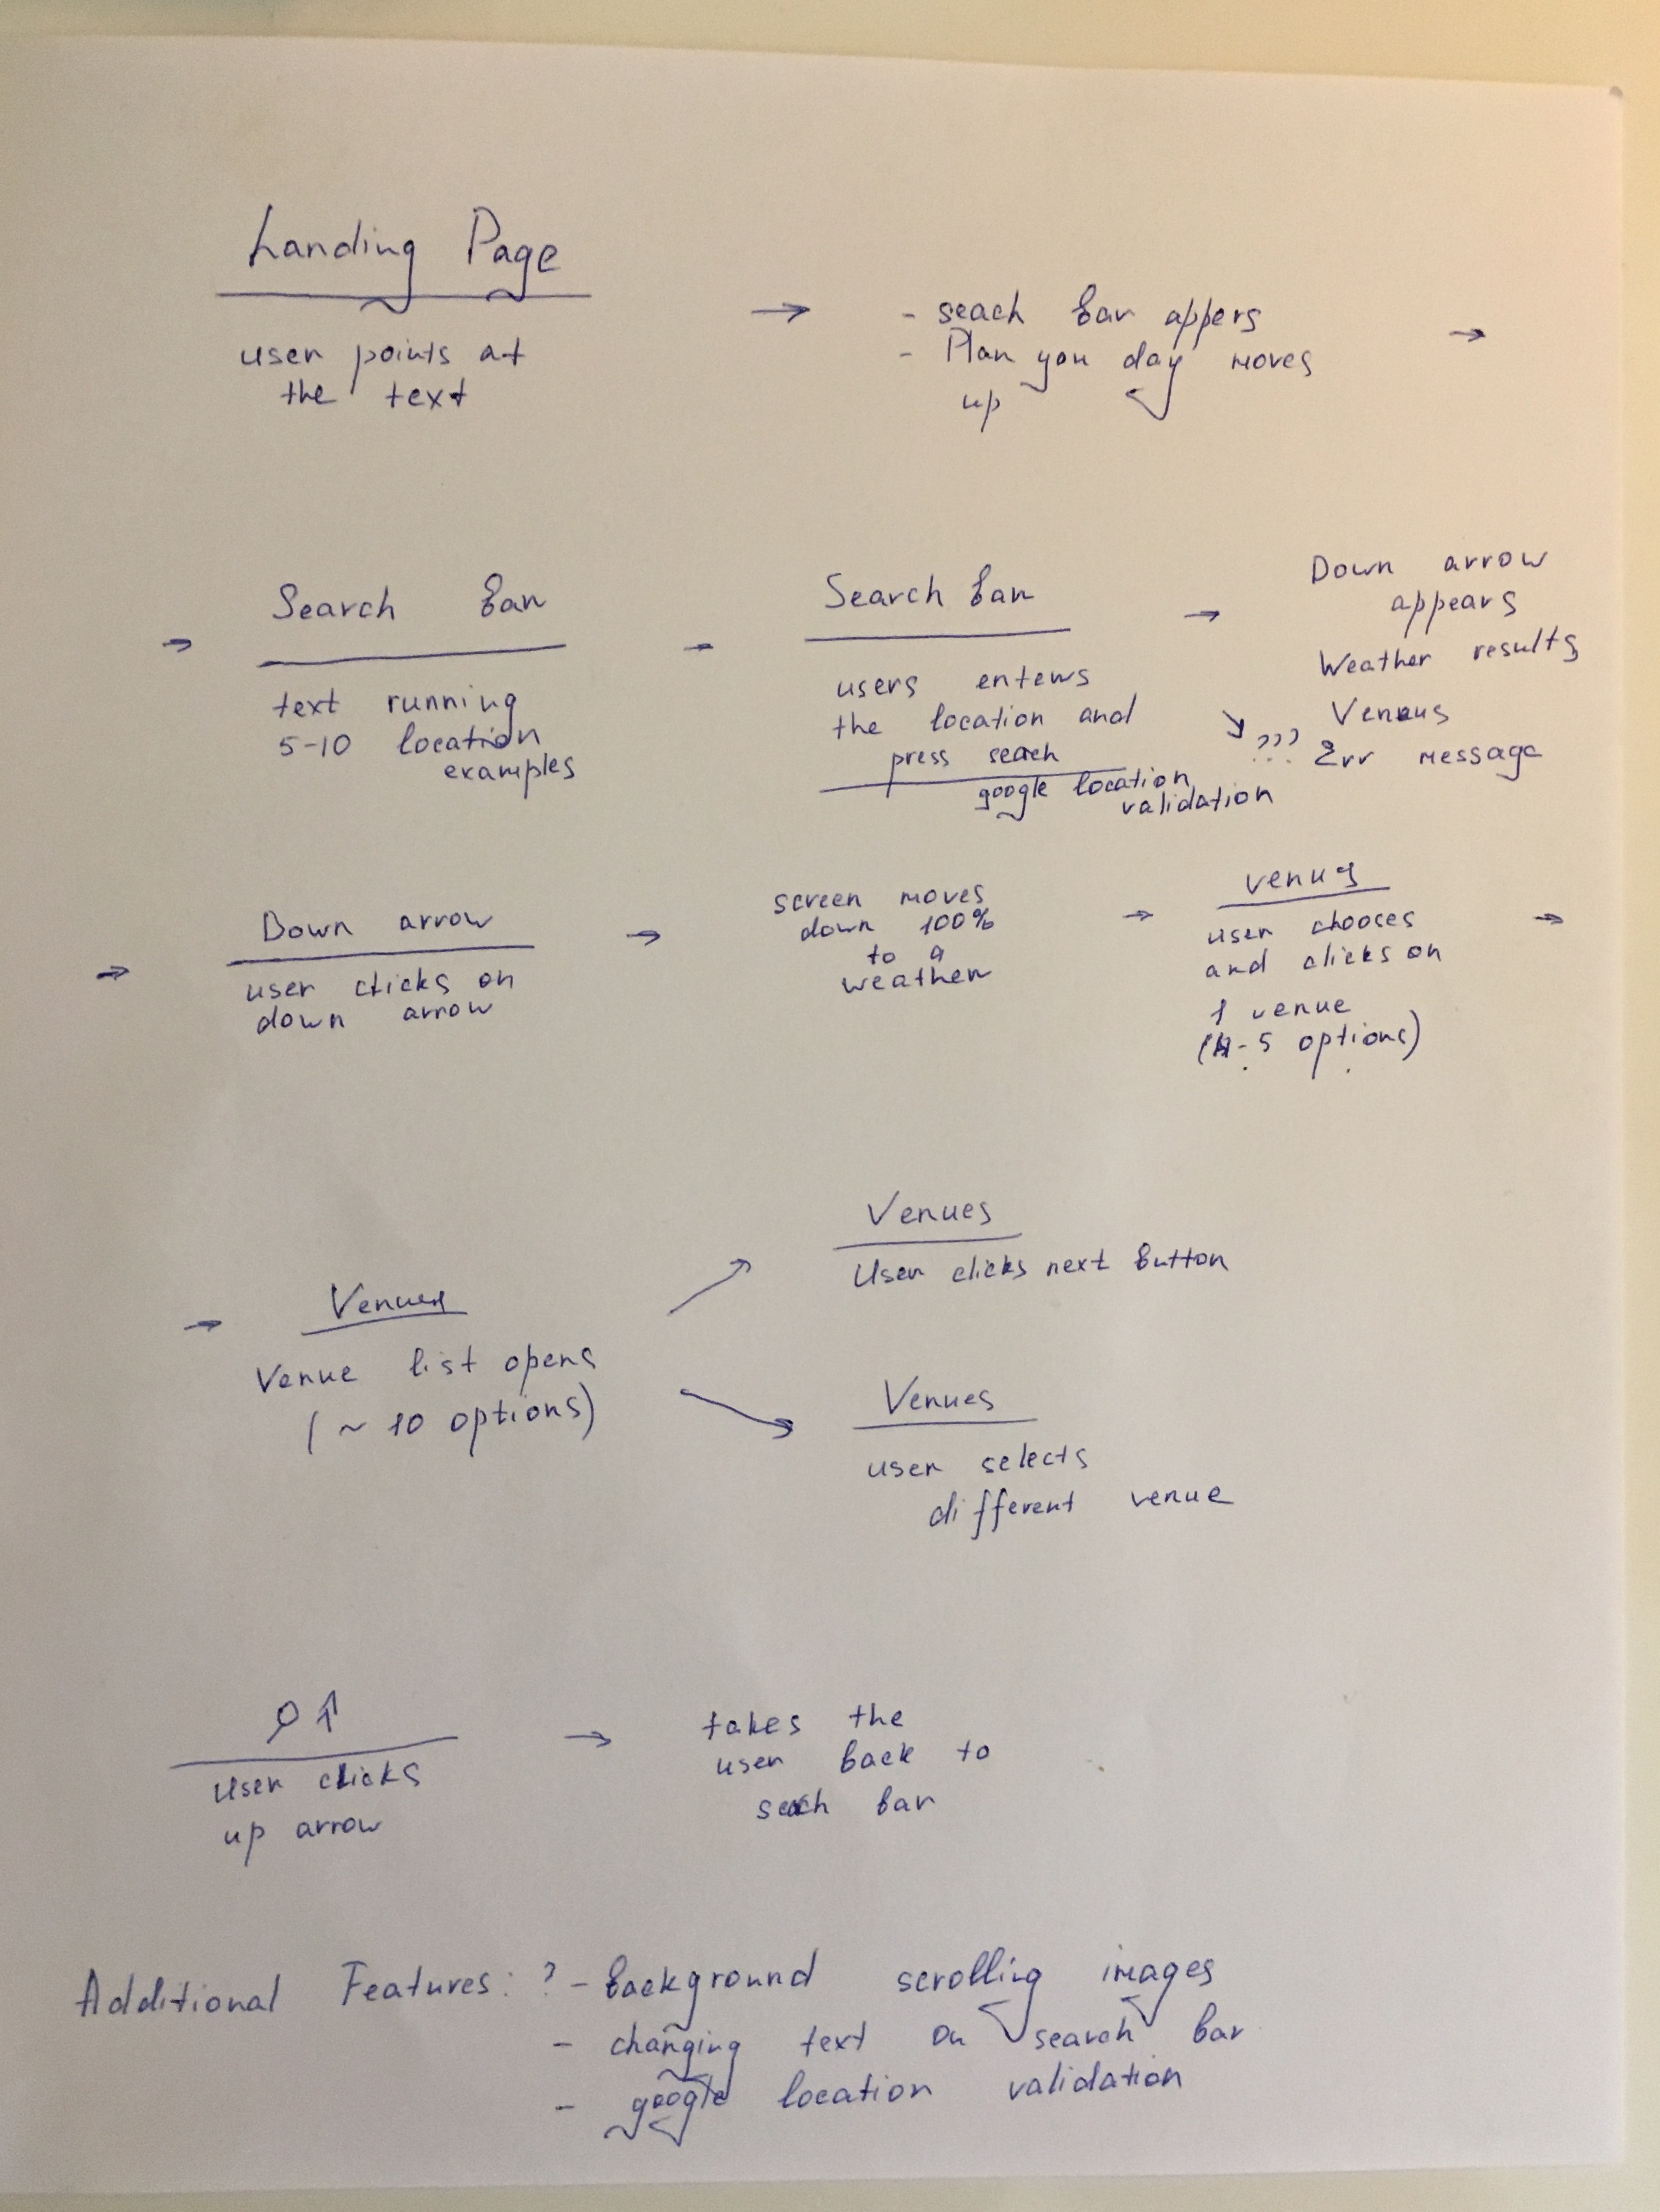 Landing Page
user points at
the text
→
- seach bar appers
- Plan you day moves
up
→
→
Search bar
text running
5-10 location
examples
→
Search bar
users enters
the location and
press seach
google location
validation
→
Down arrow
appears
Weather results
Venues
↘ ???
Err message
→
Down arrow
user clicks on
down arrow
→
screen moves
down 100%
to a
weather
→
venus
user chooses
and clicks on
1 venue
(4-5 options)
→
→
Venues
Venue list opens
(~ 10 options)
Venues
User clicks next button
Venues
user selects
different venue
↑
User clicks
up arrow
→
takes the
user back to
seach bar
Additional Features: ? - background scrolling images
- changing text on search bar
- google location validation